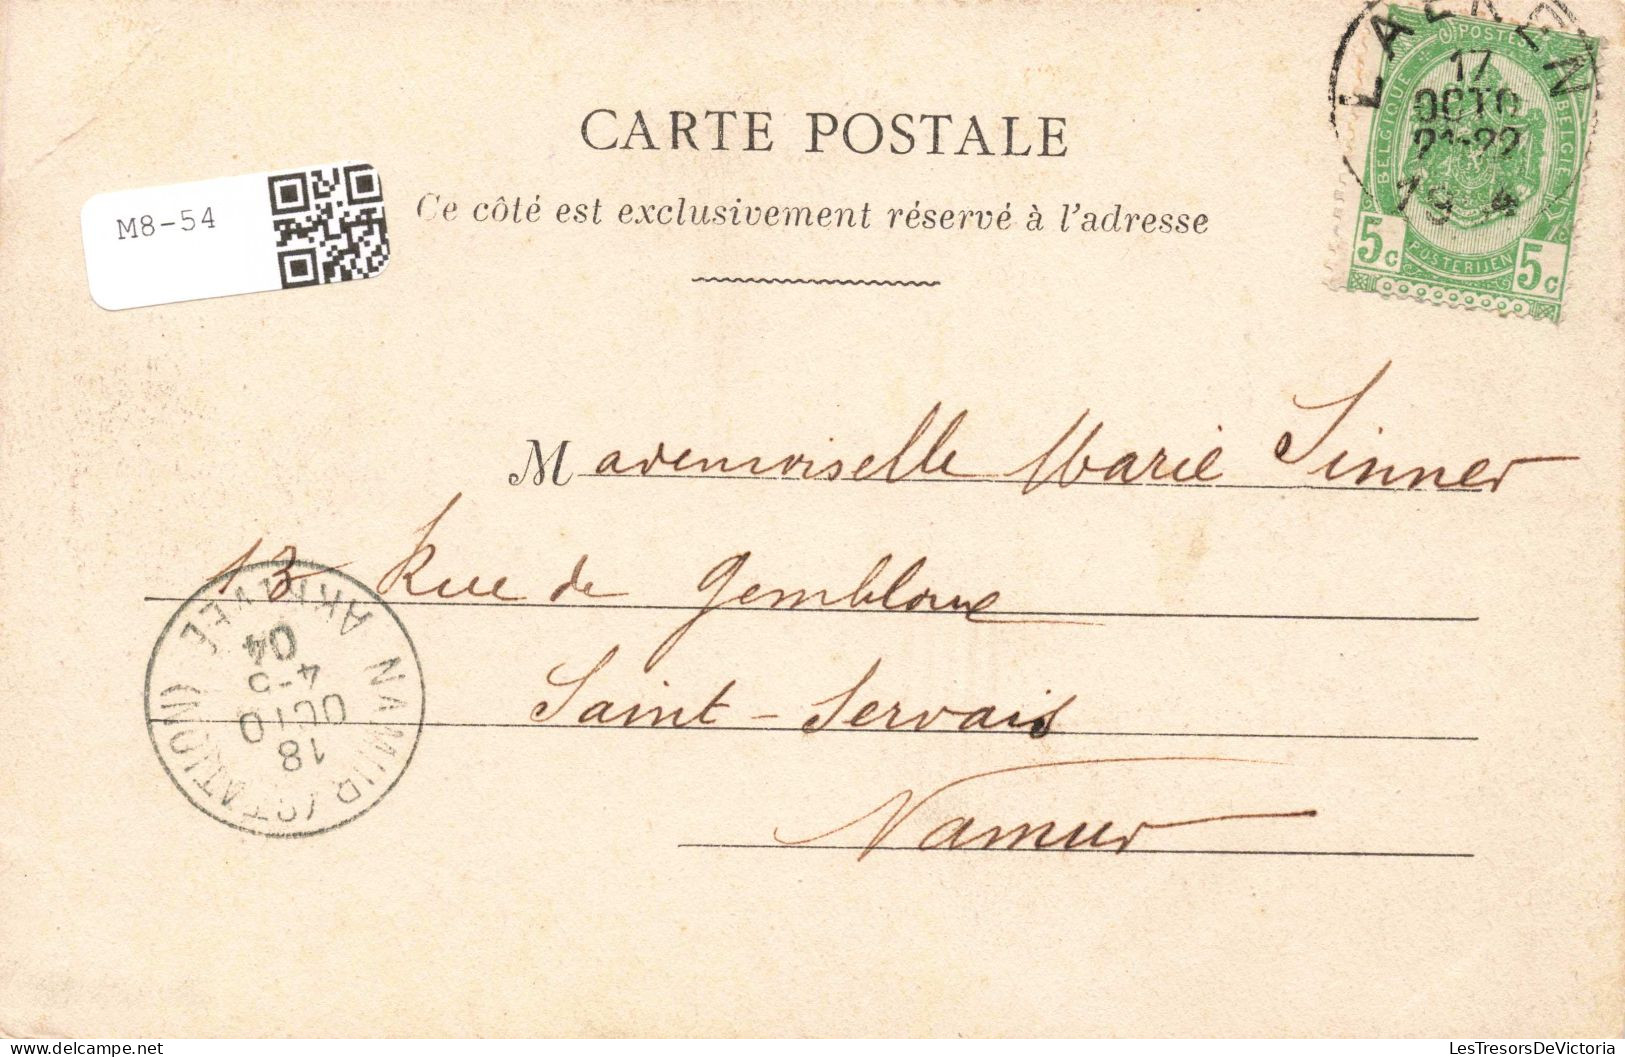 CARTE POSTALE
Ce côté est exclusivement réservé à l'adresse
M8-54
LAEKEN
17
OCTO
21-22
19 4
POSTES
BELGIQUE
BELGIË
POSTERIJEN
5c 5c
Mademoiselle Marie Sinner
13 Rue de Gembloux
Saint-Servais
Namur
NAMUR (STATION)
18
OCTO
4-5
04
LesTresorsDeVictoria